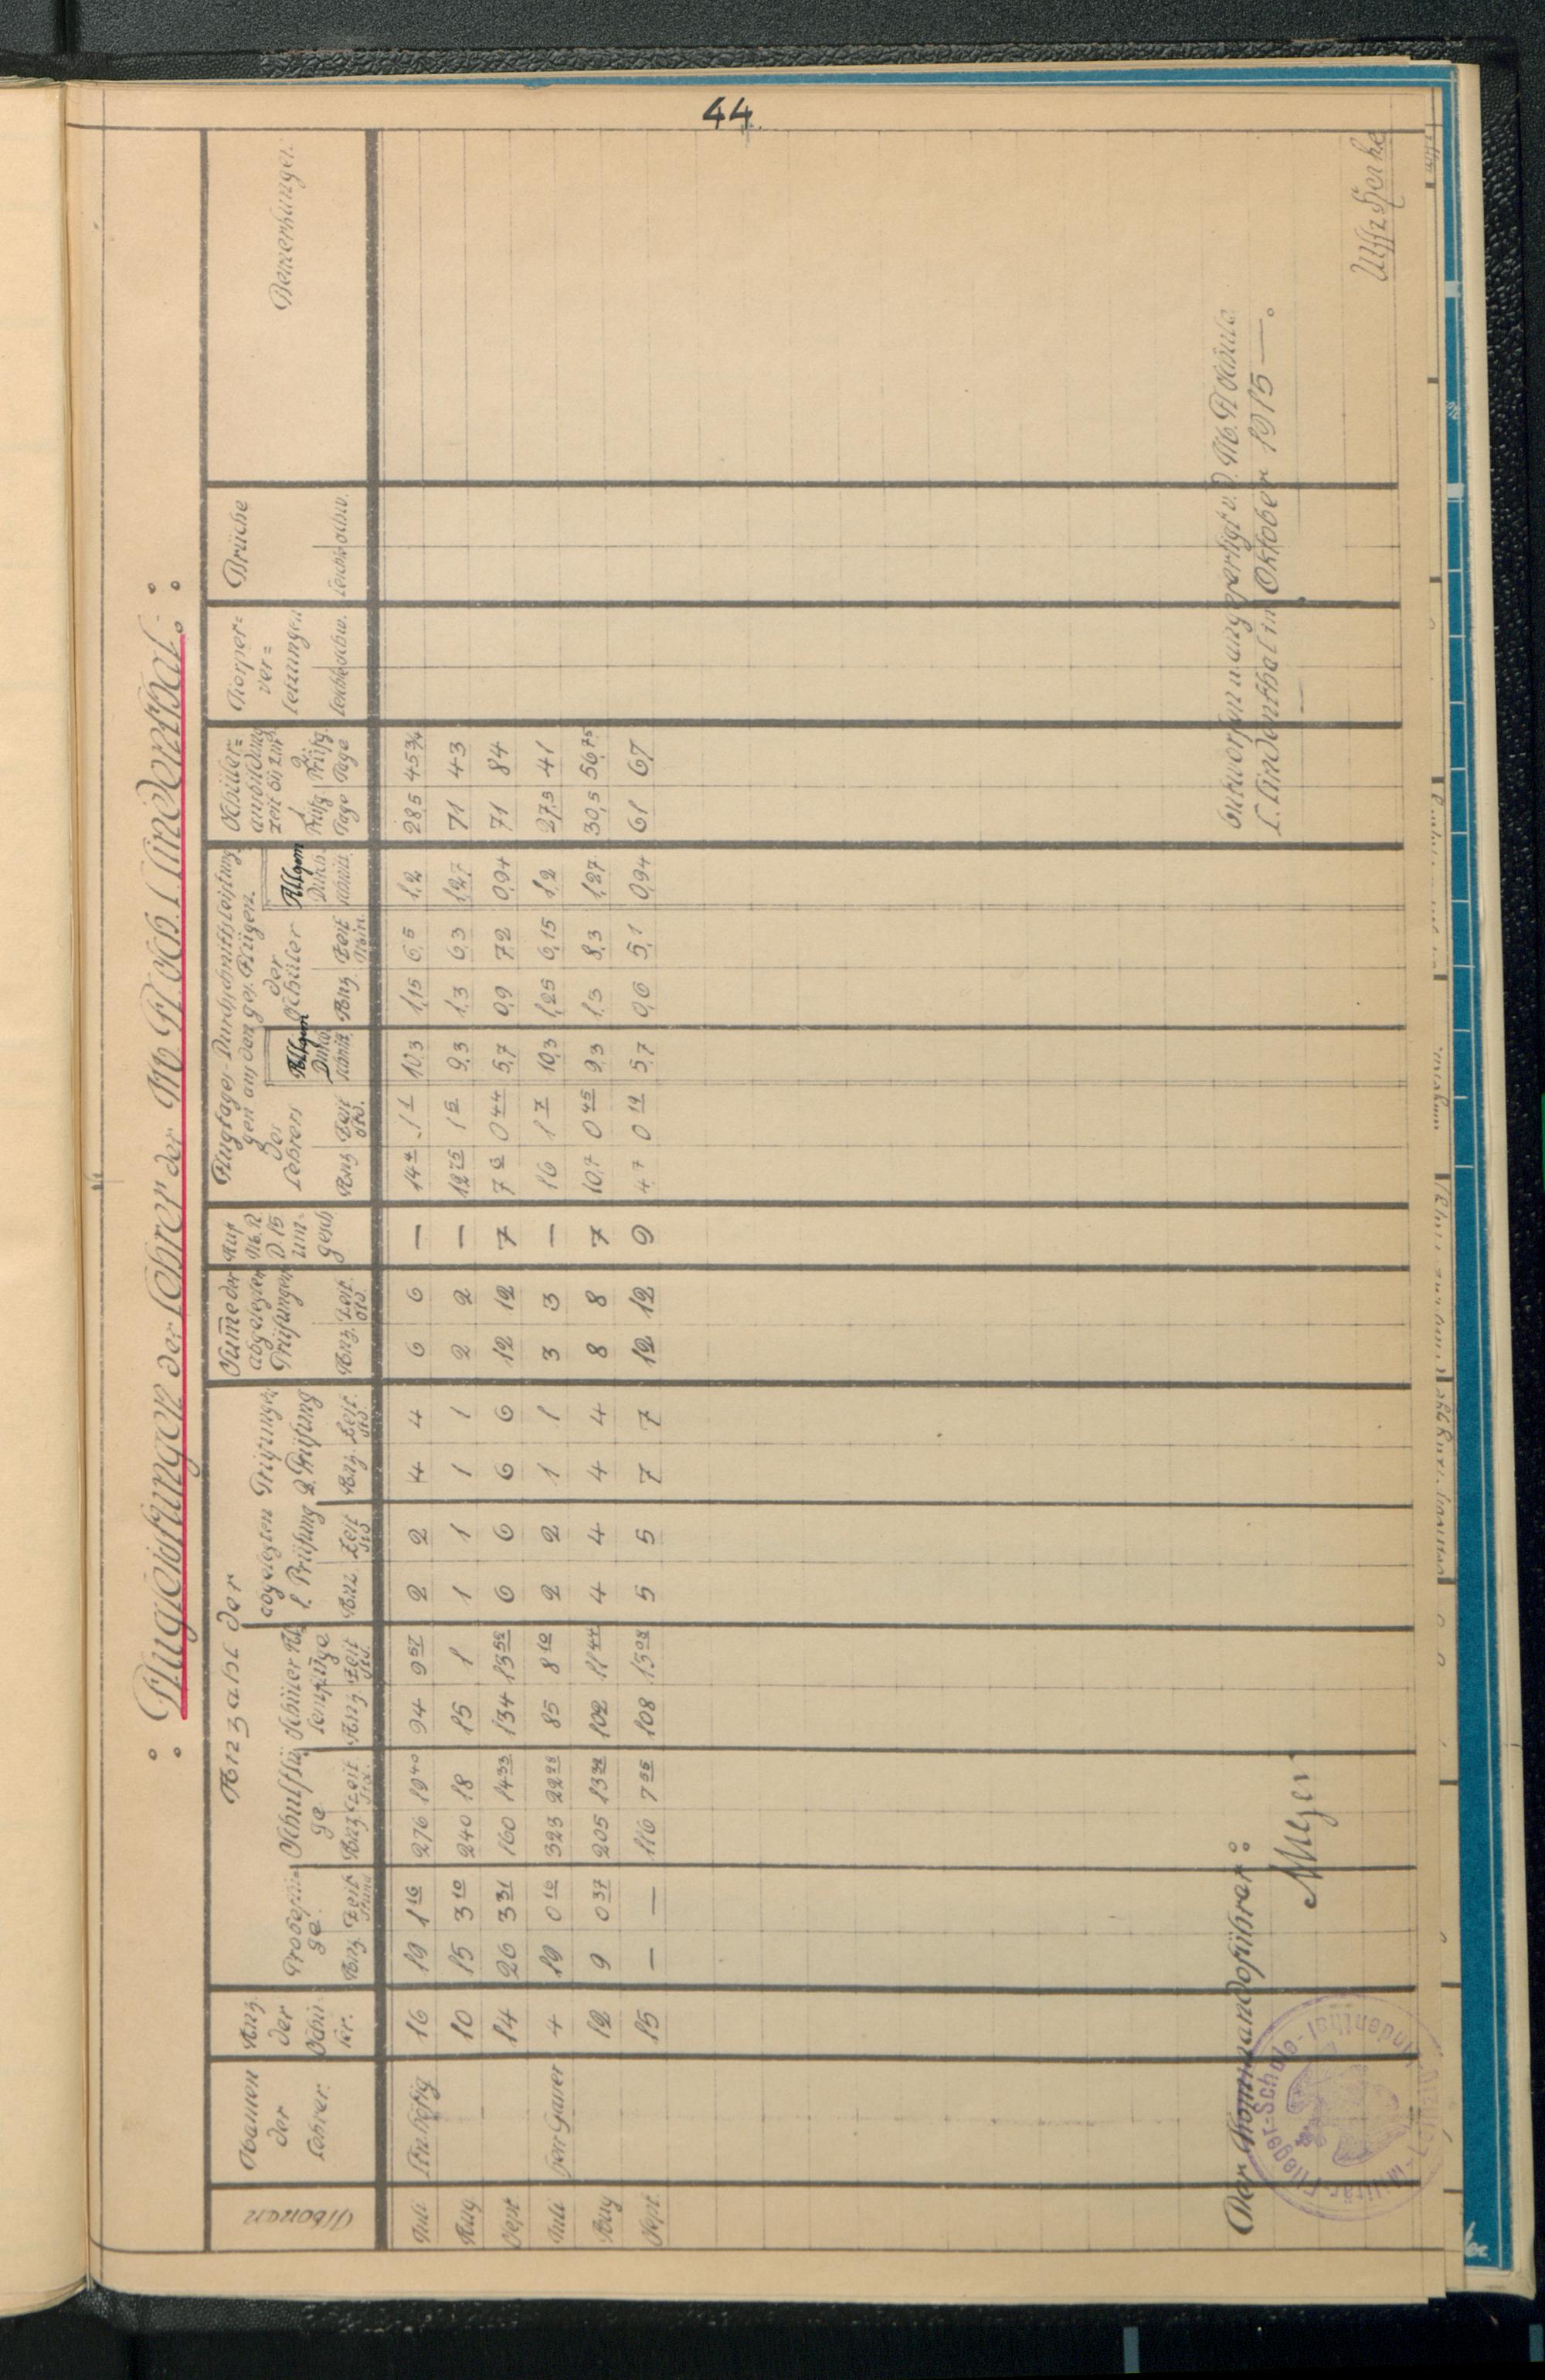 44
: Flugleistungen der Lehrer der M. Fl. Sch. L. Lindenthal. :
Monat
Namen der Lehrer.
Anz. der Schüler.
Anzahl der
Probeflüge. Anz. Zeit Stund.
Schulflüge Anz. Zeit Std.
Schüler Alleinflüge Anz. Zeit Std.
abgelegten Prüfungen
1. Prüfung Anz. Zeit Std.
2. Prüfung Anz. Zeit Std.
Sum̄e der abgelegten Prüfungen Anz. Zeit Std.
Auf D. 15 umgesch
Flugtages-Durchschnittsleistungen aus den ges. Flügen.
des Lehrers Anz. Zeit Std. Allgem Durchschnitt.
der Schüler Anz. Zeit Min. Allgem Durchschnitt.
Schülerausbildungszeit bis zur
1 Prüfg. Tage 2. Prüfg. Tage
Körperverletzungen Leicht schw.
Brüche Leicht schw.
Bemerkungen.
Juli 16 19 1 16 276 19 40 94 9 57 2 2 4 4 6 6 — 14 4 1 1 10,3 1,15 6,5 1,2 28,5 45 3/4
Aug 10 15 3 10 240 18 15 1 1 1 1 1 2 2 — 12 75 1 5 9,3 1,3 6,3 1,27 71 43
Sept 14 26 3 31 160 14 33 134 13 55 6 6 6 6 12 12 7 7 6 0 44 5,7 0,9 7,2 0,94 71 84
Juli Herr Gauer 4 19 0 10 323 22 85 8 10 2 2 1 1 3 3 — 16 1 7 10,3 1,25 6,15 1,2 27,3 41
Aug 12 9 0 37 205 13 102 11 44 4 4 4 4 8 8 7 10,7 0 45 9,3 1,3 8,3 1,27 30,5 56,75
Sept. 15 — — 116 7 108 13 5 5 7 7 12 12 9 4,7 0 19 5,7 0,6 5,1 0,94 61 67
Entworfen u. angefertigt v. d. M. Fl. Schule
L. Lindenthal im Oktober 1915 —.
Der Kommandoführer:
Militär-Flieger-Schule - Lindenthal - Leipzig